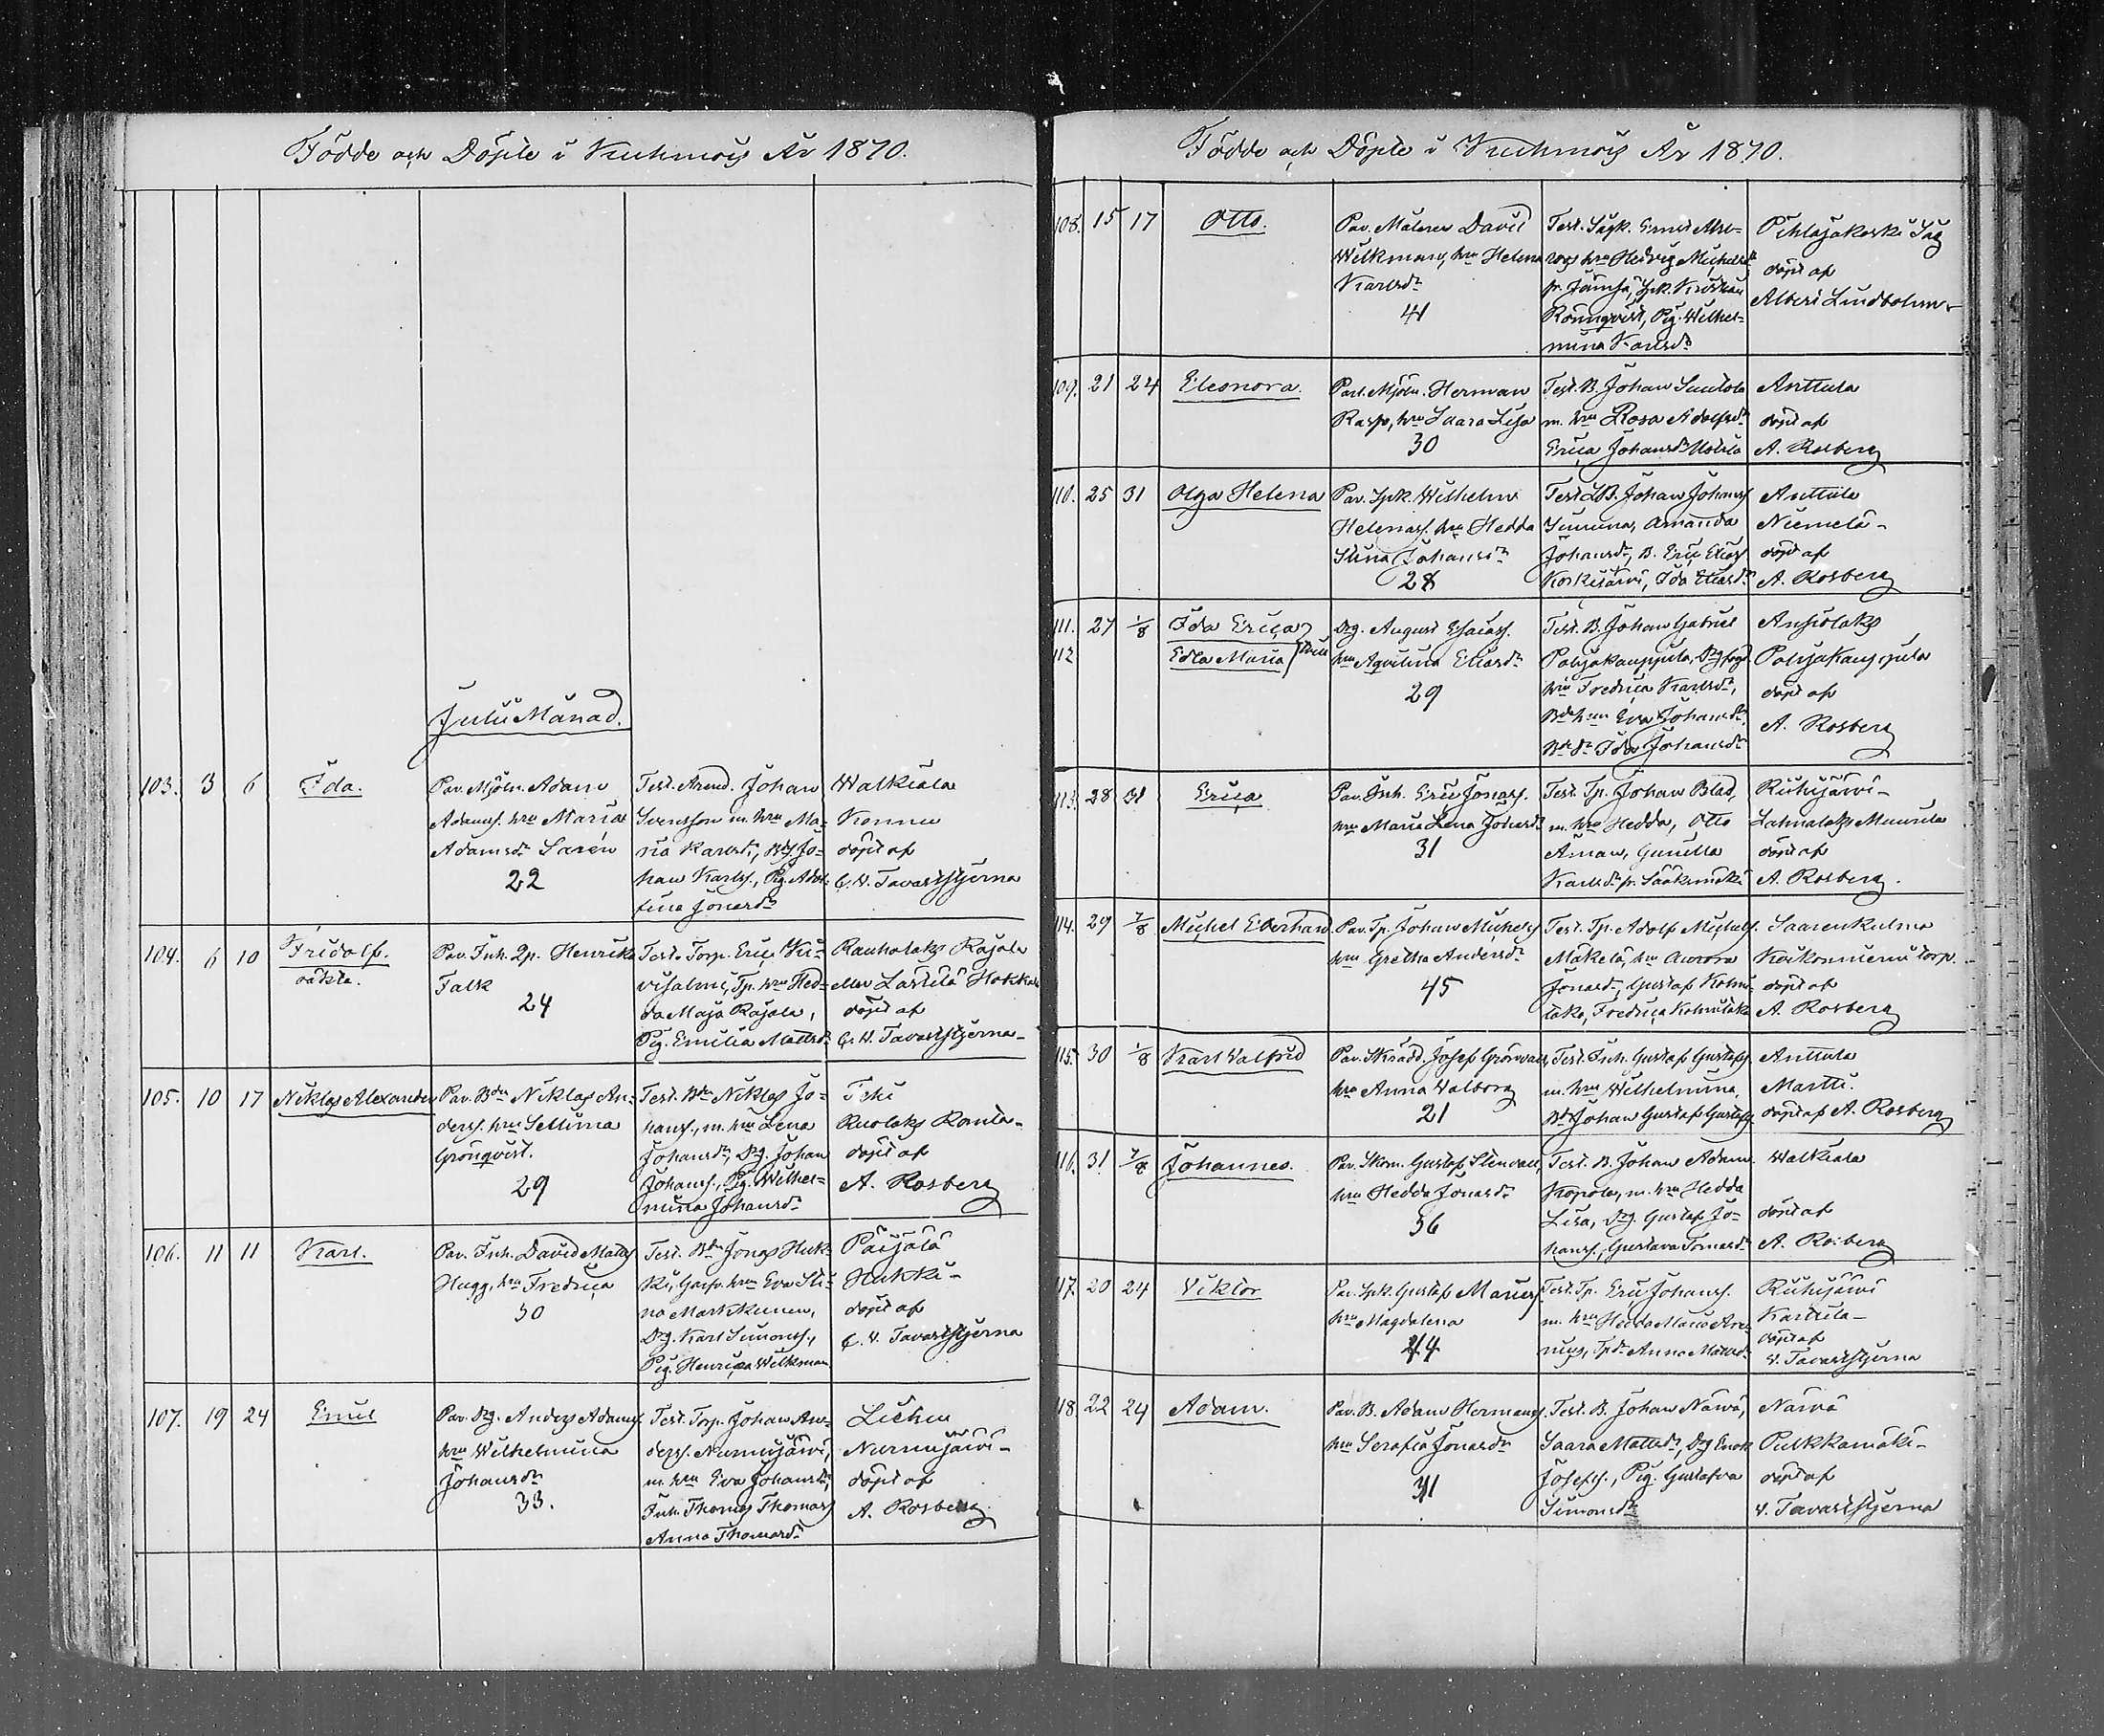 Födde och Döpte i Kuhmois År 1870.
Julii Månad.
103. 3 6 Ida.
Par. Mjöln. Adam
Adamss. hru Maria
Adamsdr Saxén
22
Test. Arend. Johan
Svensson m. hru Ma-
ria Karlsdr, Bds Jo-
han Karlss., Pig. Adol-
fina Jonasdr
Walkiala
döpt af
C. V. Tavaststjerna
104. 6 10 Fridolf.
oäkta.
Par. Inh. Qp. Henrika
Falk
24
Test. Torp. Eric Ki-
visalmi, Tp. hru Hed-
da Maja Rajala,
Pig. Emilia Mattsdr
Rauhalaks Rajala
eller Lästilä
döpt af
C. V. Tavaststjerna
105. 10 17 Niklas Alexander
Par. Bdn Niklas An-
derss. hru Sellima
Grönqvist.
29
Test. Bdn Niklas Jo-
hanss., m. hru Lena
Johansdr, Dg. Johan
Johanss., Pig. Wilhel-
mina Johansdr
Tehi
döpt af
A. Rosberg
106. 11 11 Karl.
Par. Inh. David Matts
Hugg, hru Fredrica
30
Test. Bdn Jonas Huk-
ki, hru Eva Sti-
na Markkunen,
Drg. Karl Simonss.,
Pig. Henrica Wilkman
Päijälä
Hukki
döpt af
C. V. Tavaststjerna
107. 19 24 Emil
Par. Drg. Anders Adamss
hru Wilhelmina
Johansdr
33.
Test. Torp. Johan An-
derss. Nurmijärvi,
m. hru Eva Johansdr,
Inh. Thomas Thomass
Anna Thomasdr
Lästilä
Nurmijärvi
döpt af
A. Rosberg
Födde och Döpte i Kuhmois År 1870.
108. 15 17 Otto.
Par. Målaren David
Wilkman, hru Helena
Karlsdr
41
Test. Sågk. Ernst
hru Hedvig Michelsdr
fr. Jämsä, Spk. Kristian
Rönnqvist, Pig. Wilhel-
mina Karlsdr
Pihlajakoski Såg
döpt af
Albert Lindholm
109. 21 24 Eleonora.
Par. Mjöln. Herman
Rasp, hru Saara Lisa
30
Test. B. Johan
m. hru Rosa Adolfsdr
Erica Johansdr
Anttula
döpt af
A. Rosberg
110. 25 31 Olga Helena
Par. Spk. Wilhelm
Helenass. hru Hedda
Stina Johansdr
28
Test. B. Johan Johanss
Amanda
Johansdr, B. Eric Eliass
Korkiajärvi, Ida Eliasdr
Anttula
Niemelä
döpt af
A. Rosberg
111. 27 1/8 Ida Erica
112 Edla Maria
Drg. August Esaiass.
hru Aqvilina Eliasdr
29
Test. B. Johan Gabriel
Pohjakauppila,
hru Fredrica Karlsdr,
Eva Johansdr
Bds dr Ida Johansdr
Ansiolaks
Pohjakauppila
döpt af
A. Rosberg
113. 28 31 Erica
Par. Inh. Eric Jonass.
hru Maria Lena
31
Test. Tp. Johan Blad,
m. hru Hedda, Otto
Åman, Gunilla
Karlsdr fr. Sääksmäki
Riihijärvi
döpt af
A. Rosberg.
114. 29 7/8 Michel Eberhard
Par. Tp. Johan Michelss
hru Gretha Andersdr
45
Test. Tp. Adolf Michelss.
Mäkelä, hru Aurora
Jonasdr, Gustaf
Fredrica
Saarenkulma
torp.
döpt af
A. Rosberg
115. 30 1/8 Karl Valfrid
Par. Skradd. Josef Grönvall
hru Anna Valborg
21
Test. Inh. Gustaf Gustafss
m. hru Wilhelmina,
Johan Gustaf Gustafss
Anttula
Martti.
döpt af A. Rosberg
116. 31 7/8 Johannes.
Par. Skom. Gustaf Stenvall,
hru Hedda Jonasdr
36
Test. B. Johan Adam
Kopola, m. hru Hedda
Lisa, Drg. Gustaf Jo-
hanss., Gustava
Walkiala
döpt af
A. Rosberg
117. 20 24 Viktor
Par. Spk. Gustaf
hru Magdalena
44
Test. Tp. Eric Johanss.
m. hru Hedda Maria
Anna Mattsdr
Riihijärvi
döpt af
V. Tavaststjerna
118 22 24 Adam.
Par. B. Adam Hermans
hru Serafia Jonasdr
31
Test. B. Johan Närvä,
Saara Mattsdr, Drg Enok
Josefss., Pig. Gustafva
Simonsdr
Närvä
Pulkkamäki
döpt af
V. Tavaststjerna